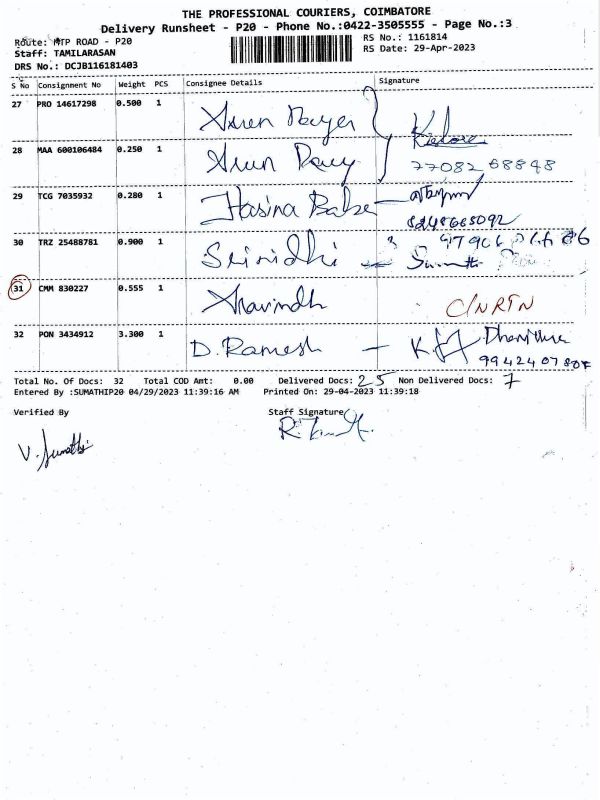 THE PROFESSIONAL COURIERS, COIMBATORE
Delivery Runsheet - P20 - Phone No.:0422-3505555 - Page No.:3
Route: MTP ROAD - P20
RS No.: 1161814
Staff: TAMILARASAN
RS Date: 29-Apr-2023
DRS No.: DCJB116181403
S No Consignment No Weight PCS Consignee Details Signature
27 PRO 14617298 0.500 1 Kishore
28 MAA 600106484 0.250 1 Arun
29 TCG 7035932 0.280 1 Hasina
30 TRZ 25488781 0.900 1 Srinidhi
31 CMM 830227 0.555 1 Aravindh C/NRTN
32 PON 3434912 3.300 1 D. Ramesh - K
Total No. Of Docs: 32 Total COD Amt: 0.00 Delivered Docs: 25 Non Delivered Docs: 7
Entered By :SUMATHIP20 04/29/2023 11:39:16 AM Printed On: 29-04-2023 11:39:18
Verified By Staff Signature
V. Sumathi